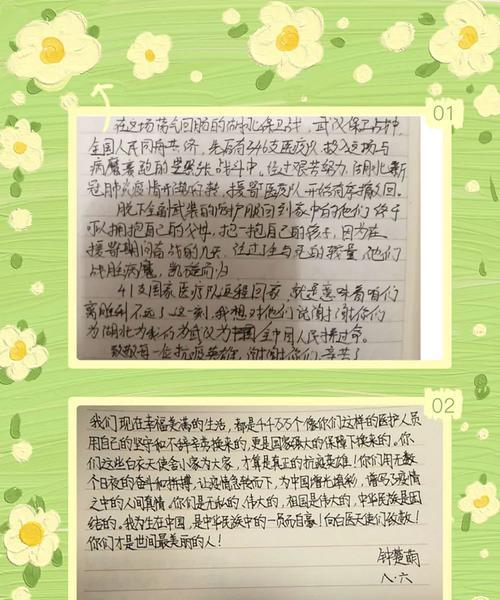 01
在这场荡气回肠的湖北保卫战、武汉保卫战中，
全国人民同舟共济，先后有346支医疗队投入这场与
病魔赛跑的 战斗中。经过艰苦努力，湖北新
冠肺炎疫情形势向好，援鄂医疗队开始有序撤回。
脱下全副武装的防护服回到家中的他们终于
可以拥抱自己的父母，抱一抱自己的孩子，因为在
援鄂期间奋战的几天，经过了生与死的较量，他们
战胜病魔，凯旋而归
41支国家医疗队返程回家，就是意味着咱们
离胜利不远了这一刻，我想对他们说谢谢你们
为湖北为我们为武汉为中国全中国人民拼过命。
致敬每一位抗疫英雄，谢谢你们，辛苦了
02
我们现在幸福美满的生活，都是44万个像你们这样的医护人员
用自己的坚守和不辞辛劳换来的，更是国家强大的保障下换来的。你
们这些白衣天使舍小家为大家，才算是真正的抗疫英雄！你们用无数
个日夜的奋斗和拼搏，让疫情急转而下，为中国增光添彩，谱写了疫情
之中的人间真情。你们是无私的、伟大的，祖国是伟大的，中华民族是团
结的。我为生在中国，是中华民族中的一员而自豪！向白衣天使们致敬！
你们才是世间最美丽的人！
钟楚萌
八·六